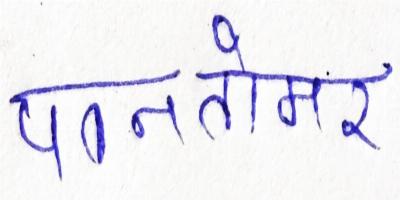 पानतोमर